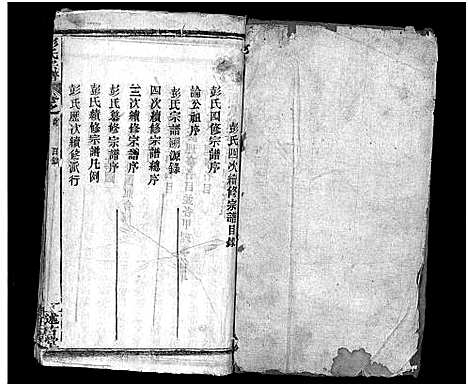 彭氏四次續修宗譜目錄
彭氏四修宗譜序
諭公祖序
彭氏宗譜溯源錄
四次續修宗譜總序
三次續修宗譜序
彭氏修宗譜序
彭氏續修宗譜凡例
彭氏歷次續修派行
彭氏宗譜
目錄